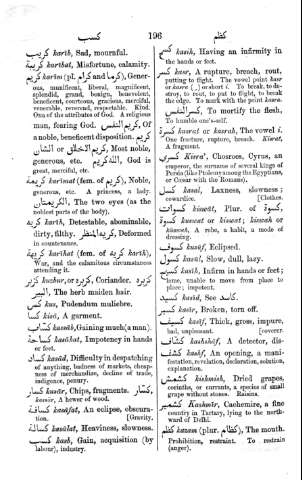 كسب 196 كظم
كريب karíb, Sad, mournful.
كربت karíbat, Misfortune, calamity.
كريم karím (pl. كرام and كرما), Gener-
ous, munificent, liberal, magnificent,
splendid, grand, benign, benevolent,
beneficent, courteous, gracious, merciful,
venerable, reverend, respectable. Kind.
One of the attributes of God. A religious
man, fearing God. كريم النفس Of
a noble, beneficent disposition. كريم
الشان or كريم الخلق, Most noble,
generous, etc. الله كريم, God is
great, merciful, etc.
كريمة karímat (fem. of كريم), Noble,
generous, etc. A princess, a lady.
كريمتان The two eyes (as the
noblest parts of the body).
كريه karíh, Detestable, abominable,
dirty, filthy. كريه المنظر Deformed
in countenance.
كريهة karíhat (fem. of كريه karíh),
War, and the calamitous circumstances
attending it.
كزبر kuzbur, or كزبره, Coriander.
البير The herb maiden hair.
كس kus, Pudendum muliebre.
كسا kisá, A garment.
كساب kassáb, Gaining much (a man).
كساحت kasáhat, Impotency in hands
or feet.
كساد kasád, Difficulty in despatching
of anything, badness of markets, cheap-
ness of merchandise, decline of trade,
indigence, penury.
كسار kasár, Chips, fragments. كسار
kassár, A hewer of wood.
كسافت kasáfat, An eclipse, obscura-
tion. [Gravity.
كسالت kasálat, Heaviness, slowness.
كسب kasb, Gain, acquisition (by
labour), industry.
كسح kasíh, Having an infirmity in
the hands or feet.
كسر kasr, A rupture, breach, rout,
putting to flight. The vowel point kasr
or kasra ( ) or short i. To break, to de-
stroy, to rout, to put to flight, to break
the edge. To mark with the point kasra.
كسر النفس, To mortify the flesh,
To humble one's-self.
كسره kasrat or kasrah, The vowel i.
One fracture, rupture, breach. Kisrat,
A fragment.
كسرى Kisra', Chosroes, Cyrus, an
emperor, the surname of several kings of
Persia (like Ptolemy among the Egyptians,
or Cæsar with the Romans).
كسل kasal, Laxness, slowness;
cowardice. [Clothes.
كسوات kiswát, Plur. of كسوة
كسوة kuswat or kiswat; kiswah or
kiswat, A robe, a habit, a mode of
dressing.
كسوف kusúf, Eclipsed.
كسول kasúl, Slow, dull, lazy.
كسيح kasíh, Infirm in hands or feet;
lame, unable to move from place to
place; impotent.
كسيد kasíd, See كاسد.
كسير kasír, Broken, torn off.
كسيف kasíf, Thick, gross, impure,
bad, unpleasant. [coverer.
كشاف kashsháf, A detector, dis-
كشف kashf, An opening, a mani-
festation, revelation, declaration, solution,
explanation.
كشمش kishmish, Dried grapes,
corinths, or currants, a species of small
grape without stones. Raisins.
كشمير Kashmír, Cachemire, a fine
country in Tartary, lying to the north-
ward of Delhi.
كظم kazam (plur. كظام), The mouth.
Prohibition, restraint. To restrain
(anger).